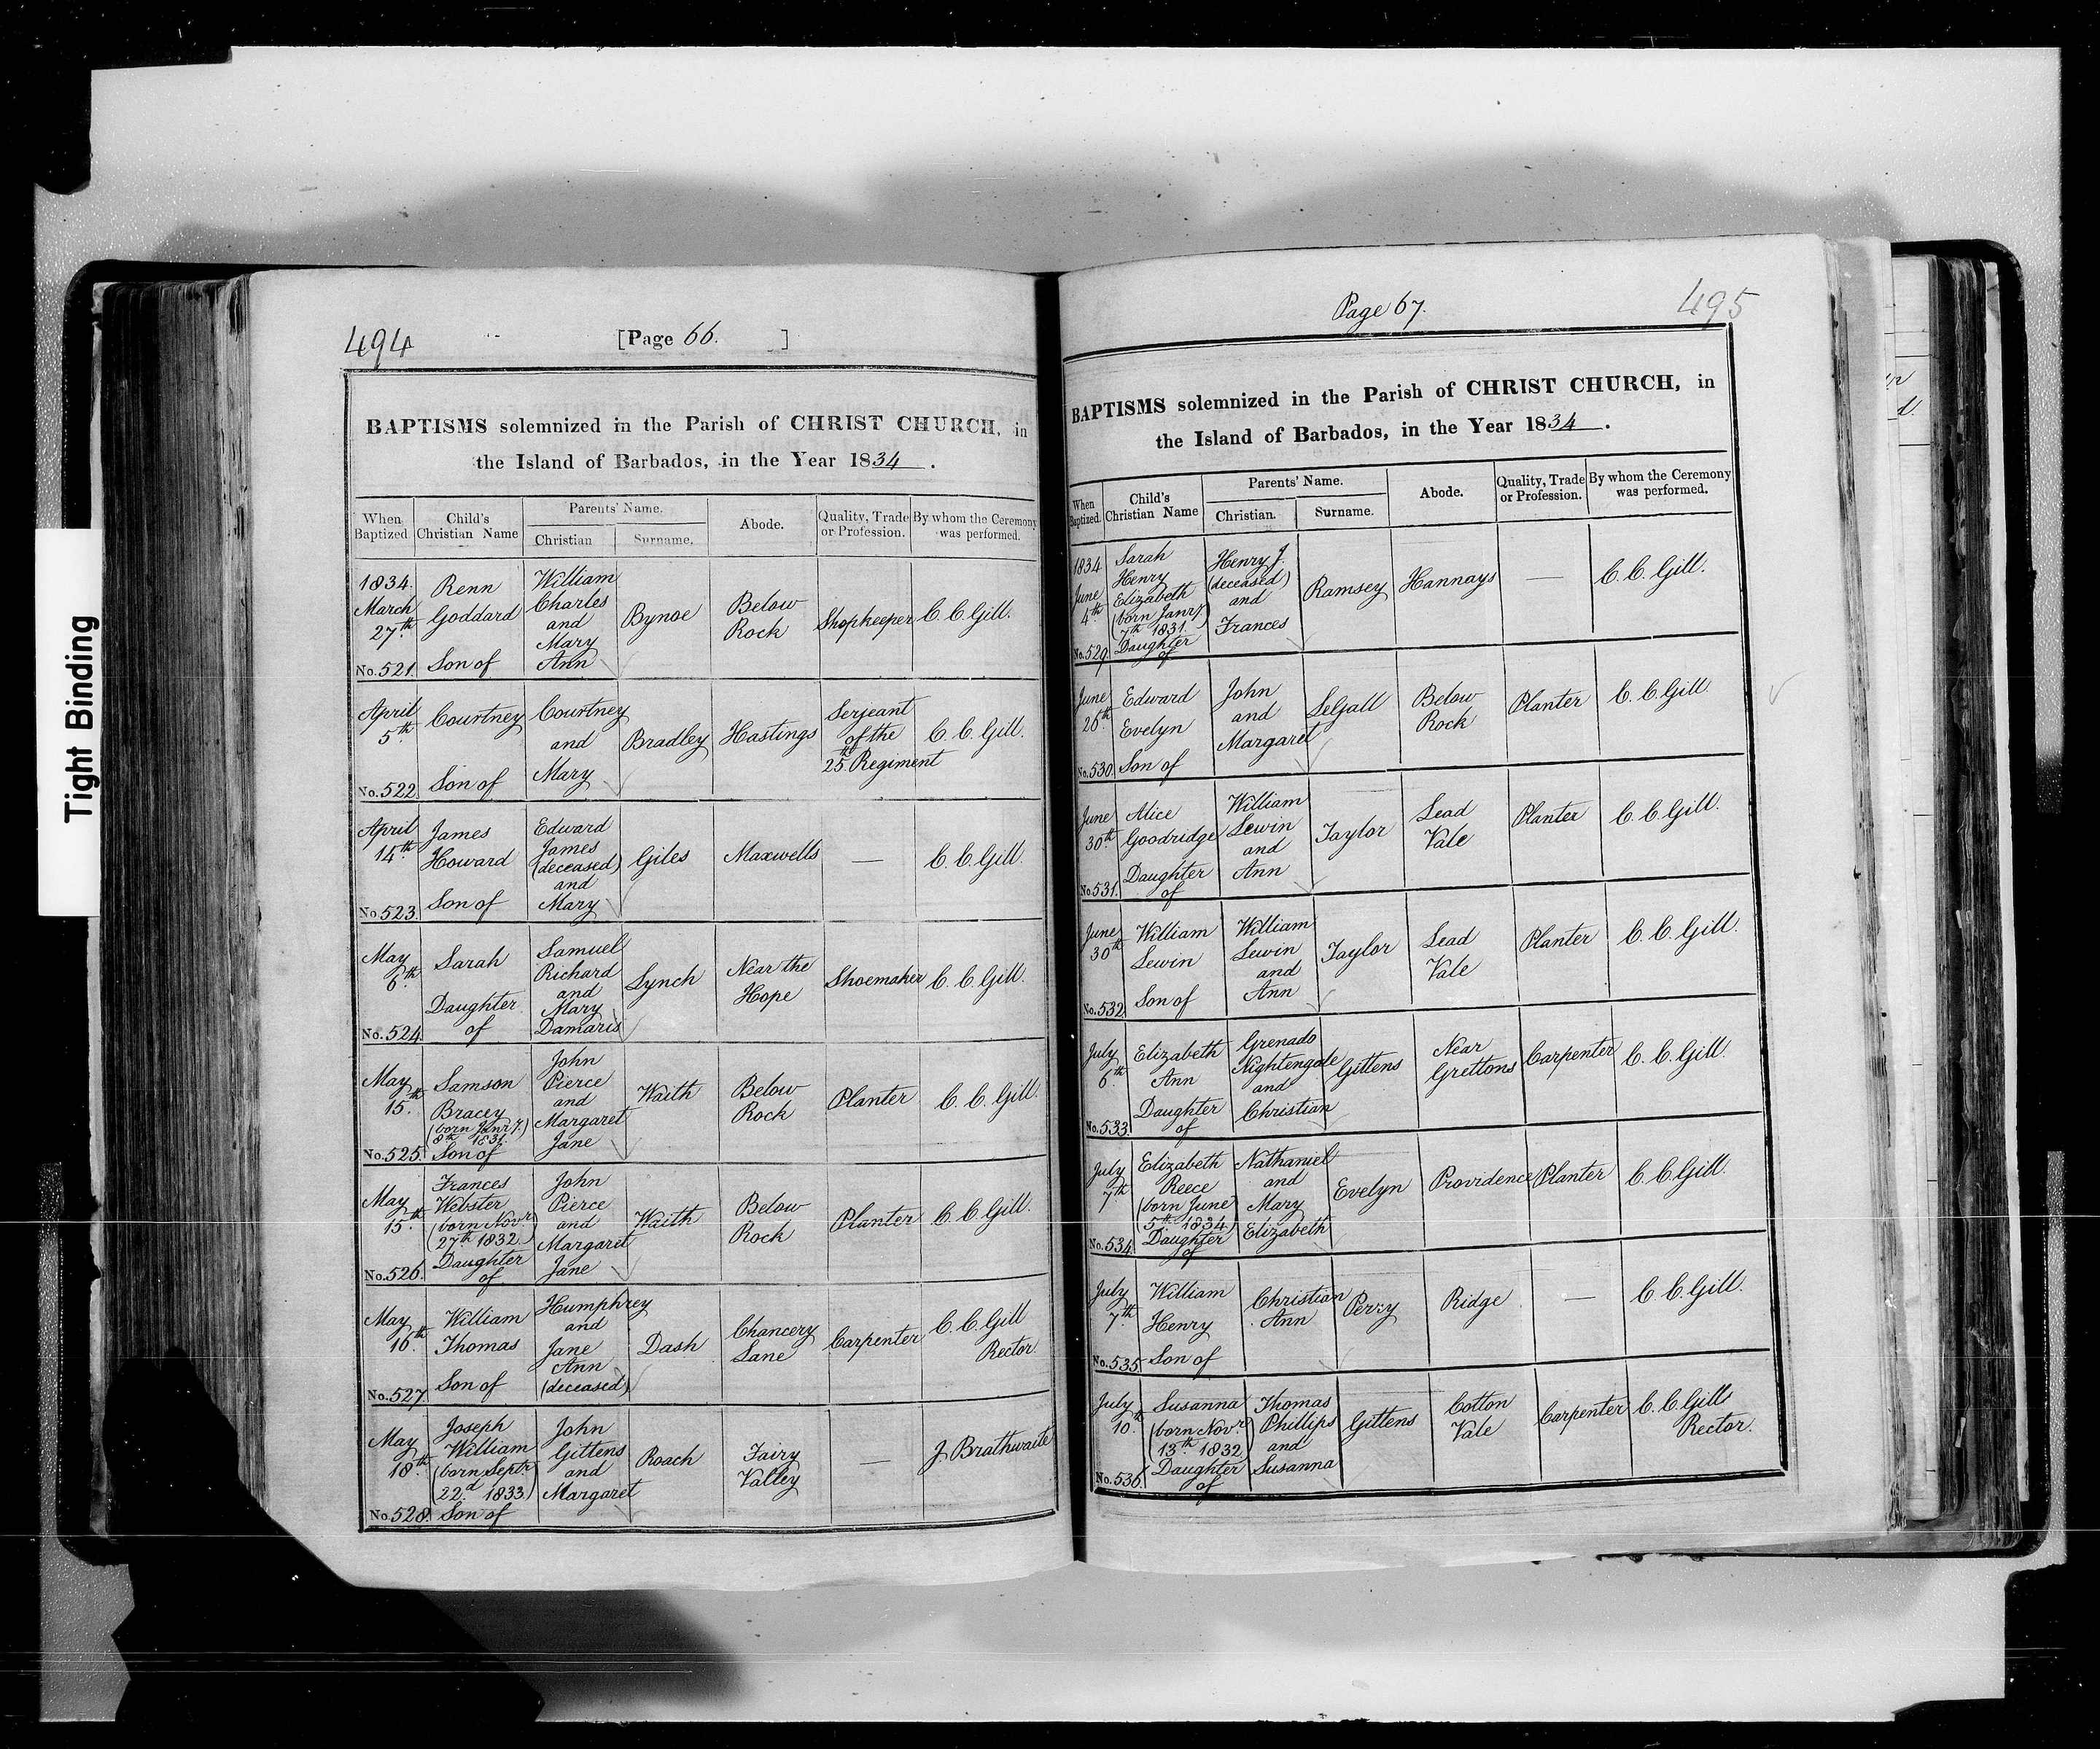 Tight Binding
494
[Page 66. ]
BAPTISMS solemnized in the Parish of CHRIST CHURCH, in
the Island of Barbados, in the Year 1834.
When Baptized. Child's Christian Name Parents' Name. Christian Surname. Abode. Quality, Trade or Profession. By whom the Ceremony was performed.
1834. March 27th. No. 521. Renn Goddard Son of William Charles and Mary Ann Bynoe Below Rock Shopkeeper C. C. Gill.
April 5th. No. 522. Courtney Son of Courtney and Mary Bradley Hastings Serjeant of the 25th Regiment C. C. Gill.
April 14th. No. 523. James Howard Son of Edward James (deceased) and Mary Giles Maxwells — C. C. Gill.
May 6th. No. 524. Sarah Daughter of Samuel Richard and Mary Damaris Lynch Near the Hope Shoemaker C. C. Gill.
May 15th. No. 525. Samson Bracey (born Janry. 8th 1831.) Son of John Pierce and Margaret Jane Waith Below Rock Planter C. C. Gill.
May 15th. No. 526. Frances Webster (born Novr. 27th 1832.) Daughter of John Pierce and Margaret Jane Waith Below Rock Planter C. C. Gill.
May 16th. No. 527. William Thomas Son of Humphrey and Jane Ann (deceased) Dash Chancery Lane Carpenter C. C. Gill Rector.
May 18th. No. 528. Joseph William (born Septr. 22d. 1833.) Son of John Gittens and Margaret Roach Fairy Valley — J Brathwaite
Page 67.
495
BAPTISMS solemnized in the Parish of CHRIST CHURCH, in
the Island of Barbados, in the Year 1834.
When Baptized. Child's Christian Name Parents' Name. Christian. Surname. Abode. Quality, Trade or Profession. By whom the Ceremony was performed.
1834. June 4th. No. 529. Sarah Henry Elizabeth (born Janry. 7th 1831.) Daughter of Henry J. (deceased) and Frances Ramsey Hannays — C. C. Gill.
June 26th. No. 530. Edward Evelyn Son of John and Margaret LeGall Below Rock Planter C. C. Gill.
June 30th. No. 531. Alice Goodridge Daughter of William Lewin and Ann Taylor Lead Vale Planter C. C. Gill.
June 30th No. 532. William Lewin Son of William Lewin and Ann Taylor Lead Vale Planter C. C. Gill.
July 6th. No. 533. Elizabeth Ann Daughter of Grenado Nightengale and Christian Gittens Near Grettons Carpenter C. C. Gill.
July 7th No. 534. Elizabeth Reece (born June 5th 1834) Daughter of Nathaniel and Mary Elizabeth Evelyn Providence Planter C. C. Gill.
July 7th. No. 535. William Henry Son of Christian Ann Perry Ridge — C. C. Gill.
July 10th. No. 536. Susanna (born Novr. 13th 1832) Daughter of Thomas Phillips and Susanna Gittens Cotton Vale Carpenter C. C. Gill Rector.